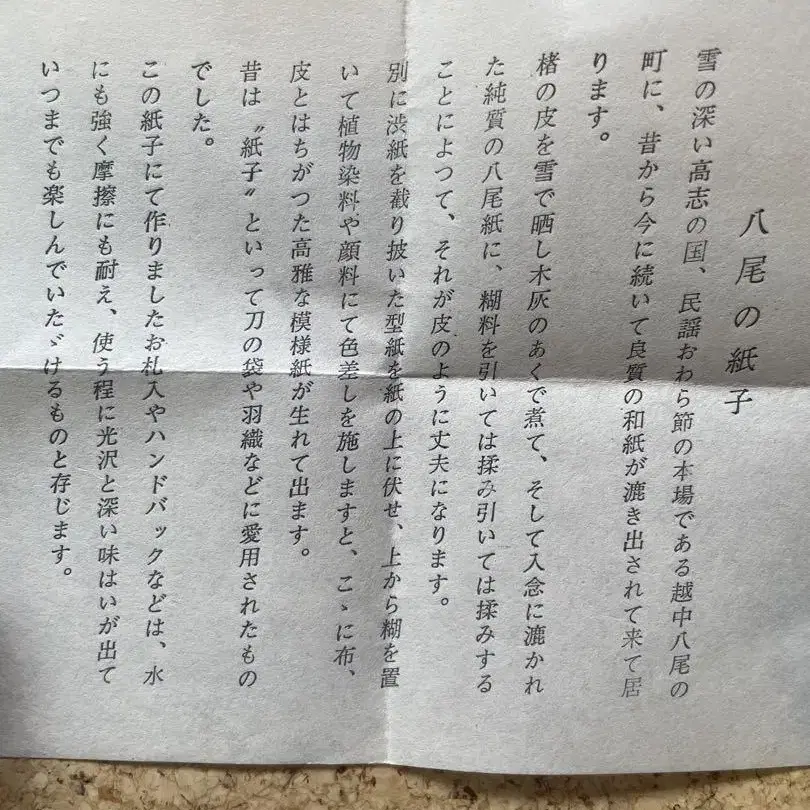 八尾の紙子
雪の深い高志の国、民謡おわら節の本場である越中八尾の
町に、昔から今に続いて良質の和紙が漉き出されて来て居
ります。
楮の皮を雪で晒し木灰のあくで煮て、そして入念に漉かれ
た純質の八尾紙に、糊料を引いては揉み引いては揉みする
ことによつて、それが皮のように丈夫になります。
別に渋紙を截り披いた型紙を紙の上に伏せ、上から糊を置
いて植物染料や顔料にて色差しを施しますと、こゝに布、
皮とはちがつた高雅な模様紙が生れて出ます。
昔は〝紙子〟といって刀の袋や羽織などに愛用されたもの
でした。
この紙子にて作りましたお札入やハンドバックなどは、水
にも強く摩擦にも耐え、使う程に光沢と深い味はいが出て
いつまでも楽しんでいたゞけるものと存じます。